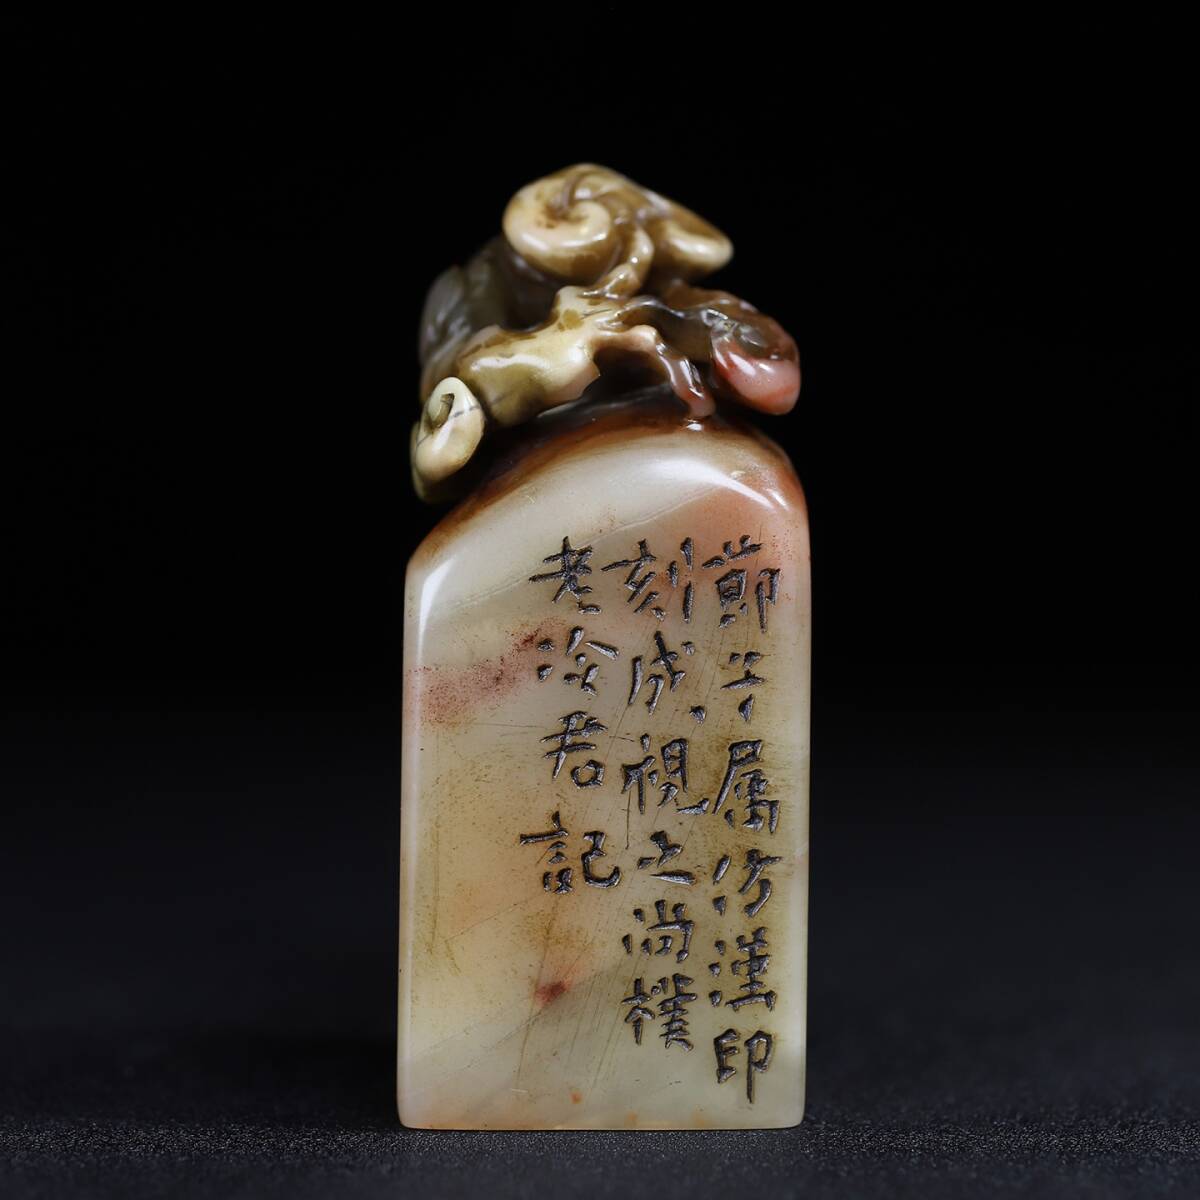 節属仿漢印
刻成、視之尚樸
老冷君記